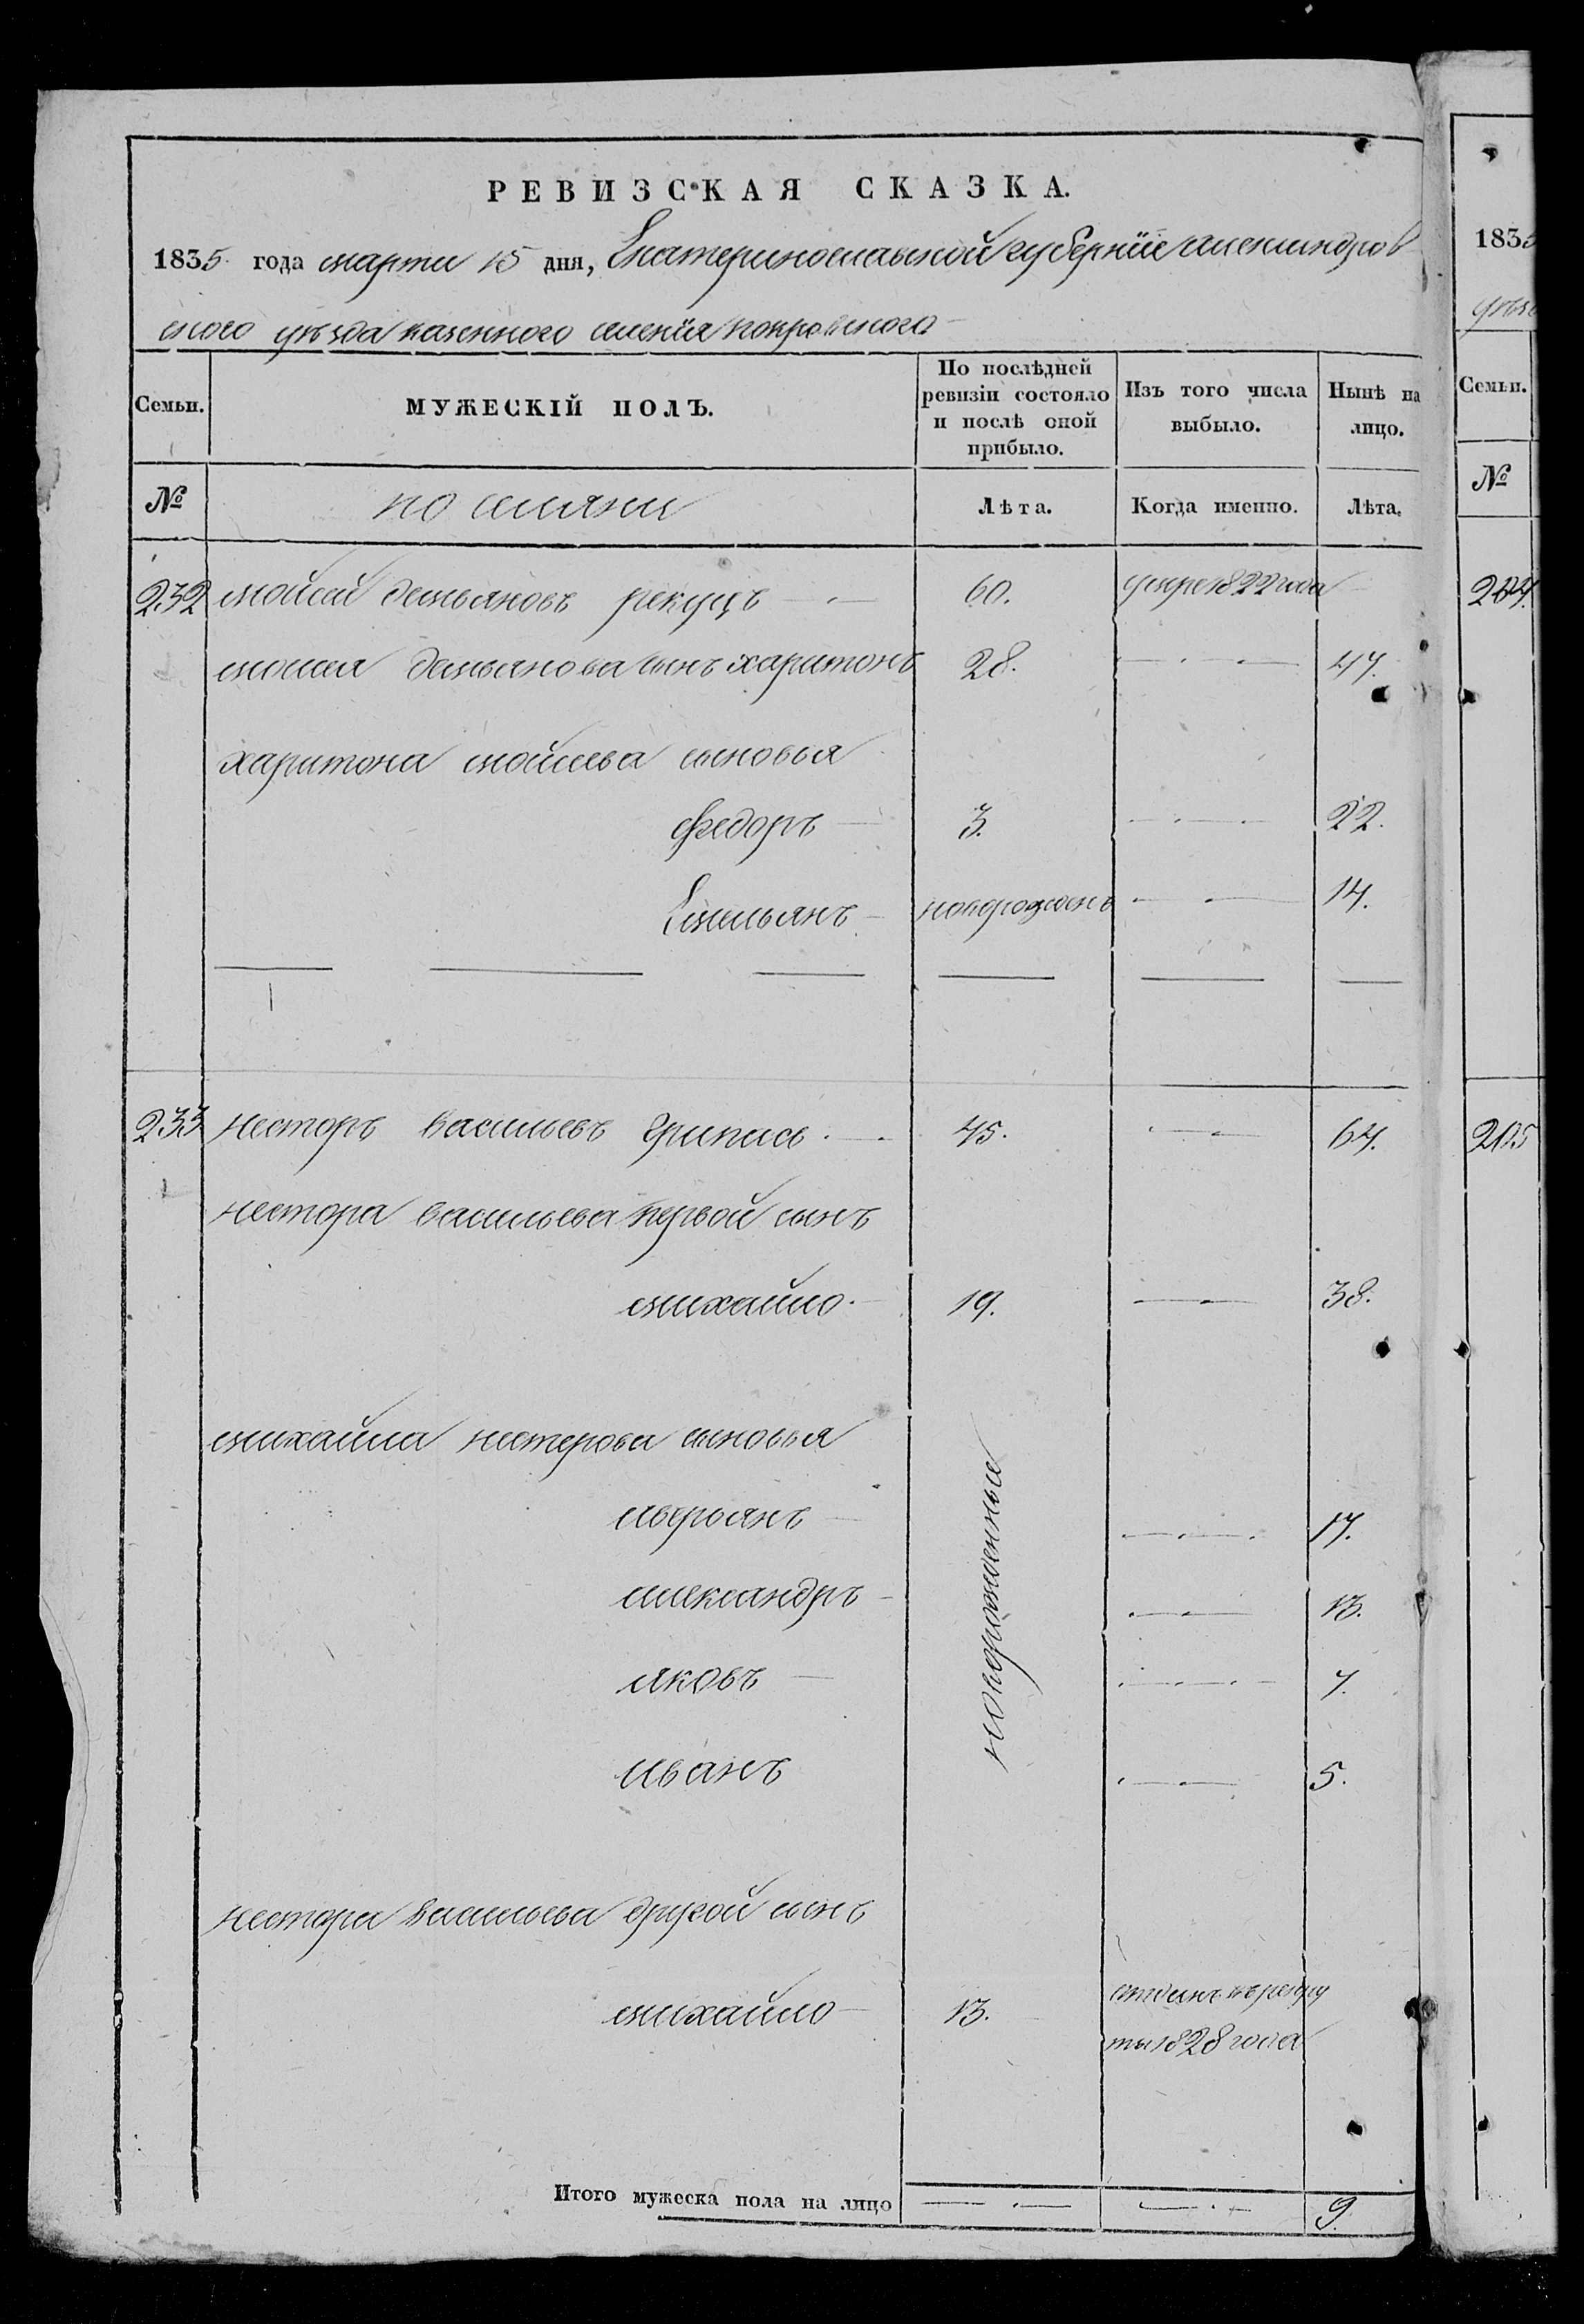 РЕВИЗСКАЯ СКАЗКА.
1835 года марта 15 дня, Екатеринославской губернїи александров
ского уѣзда казенного селенїя покровского
Семьи.
МУЖЕСКІЙ ПОЛЪ.
По послѣдней ревизіи состояло и послѣ оной прибыло.
Изъ того числа выбыло.
Нынѣ на лицо.
№
поселяни
Лѣта.
Когда именно.
Лѣта.
232 мойсей демьяновъ рекуцъ 60. умре 1822 года
мосея демьянова сынъ харитонъ 28. 47.
харитона мойсеева сыновья
федоръ 3. 22.
Емельянъ новорожденъ 14.
233 несторъ васильевъ 45. 64.
нестора васильева первой сынъ
михайло. 19. 38.
михайла нестерова сыновья
новорожденные
аверьянъ 17.
александръ 13.
яковъ 7.
иванъ 5.
нестора васильева другой сынъ
михайло 13. отданъ в рекру
ты 1828 года
Итого мужеска пола на лицо 9.
1835
уѣзд
Семьи.
№
204
205